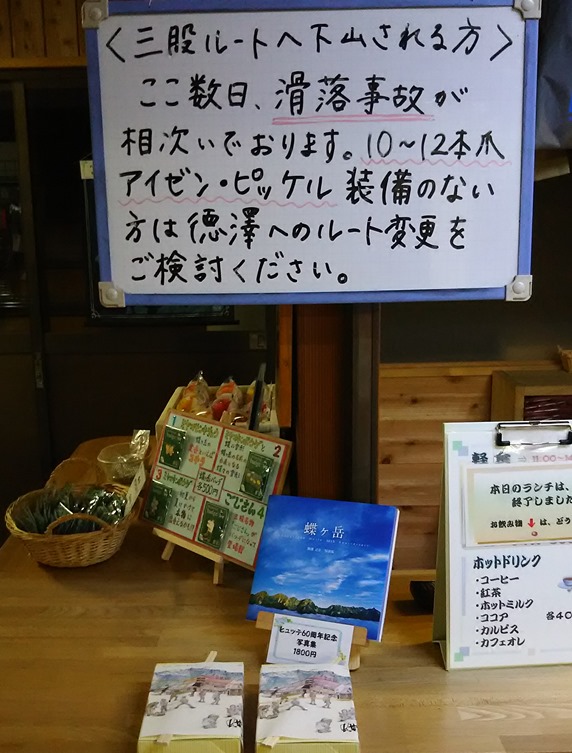 ＜三股ルートへ下山される方＞
ここ数日、滑落事故が
相次いでおります。10～12本爪
アイゼン・ピッケル 装備のない
方は徳澤へのルート変更を
ご検討ください。
1
2
3
各500円
蝶ヶ岳
ヒュッテ60周年記念
写真集
1800円
軽食
11:00～14
本日のランチは、
終了しました
お飲み物 は、どう
ホットドリンク
・コーヒー
・紅茶
・ホットミルク
・ココア
・カルピス
・カフェオレ
各40